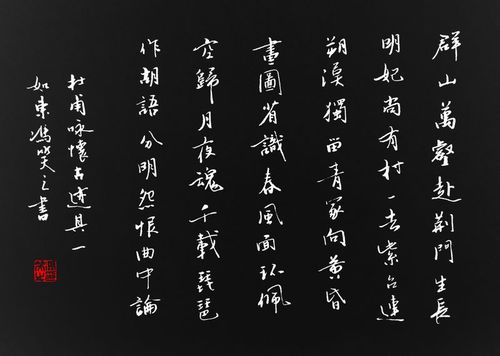 群山萬壑赴荆門生長
明妃尚有村一去紫台連
朔漠獨留青冢向黃昏
畫圖省識春風面環佩
空歸月夜魂千載琵琶
作胡語分明怨恨曲中論
杜甫咏懷古迹其一
如東馮笑之書